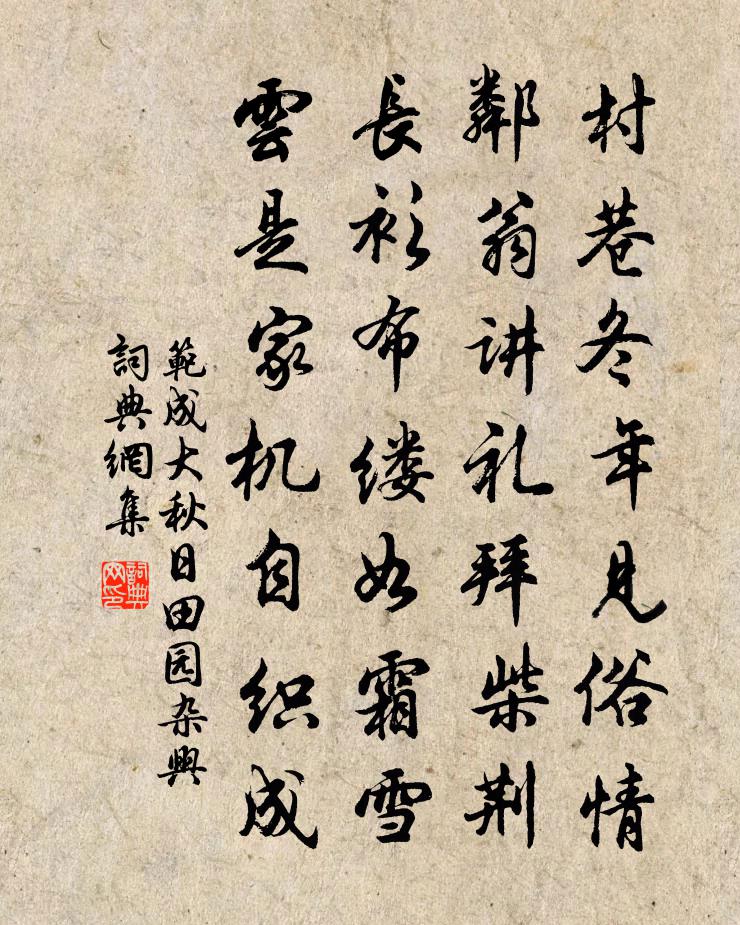 村巷冬年見俗情
鄰翁讲礼拜柴荆
長衫布缕如霜雪
雲是家机自织成
範成大秋日田园杂興
詞典網集
詞典网印